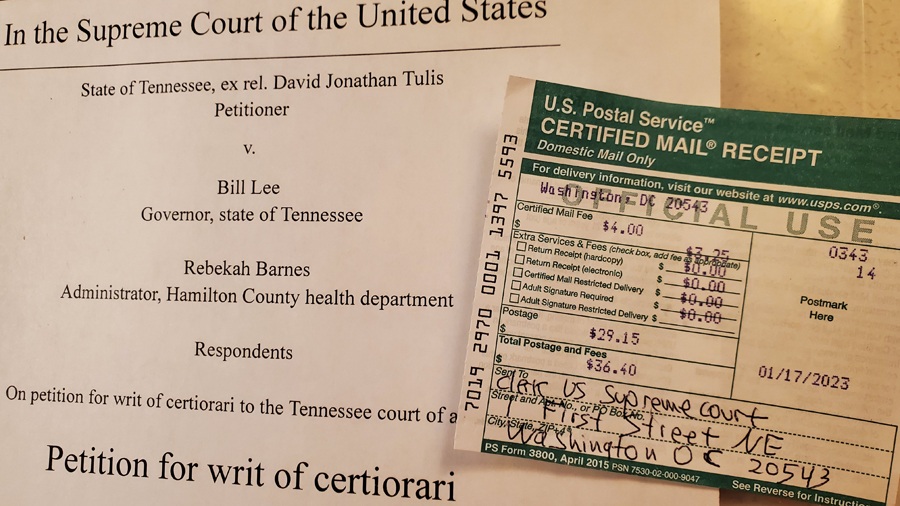 In the Supreme Court of the United States
State of Tennessee, ex rel. David Jonathan Tulis
Petitioner
v.
Bill Lee
Governor, state of Tennessee
Rebekah Barnes
Administrator, Hamilton County health department
Respondents
On petition for writ of certiorari to the Tennessee court of a
Petition for writ of certiorari
7019 2970 0001 1397 5593
U.S. Postal Service™
CERTIFIED MAIL® RECEIPT
Domestic Mail Only
For delivery information, visit our website at www.usps.com®.
OFFICIAL USE
Washington, DC 20543
Certified Mail Fee
$ $4.00
$3.25
Extra Services & Fees (check box, add fee as appropriate)
Return Receipt (hardcopy) $ $0.00
Return Receipt (electronic) $ $0.00
Certified Mail Restricted Delivery $ $0.00
Adult Signature Required $ $0.00
Adult Signature Restricted Delivery $
Postage
$ $29.15
Total Postage and Fees
$ $36.40
0343
14
Postmark
Here
01/17/2023
Sent To
Clerk US Supreme court
Street and Apt. No., or PO Box No.
1 First Street NE
City, State, ZIP+4®
Washington DC 20543
PS Form 3800, April 2015 PSN 7530-02-000-9047
See Reverse for Instructio